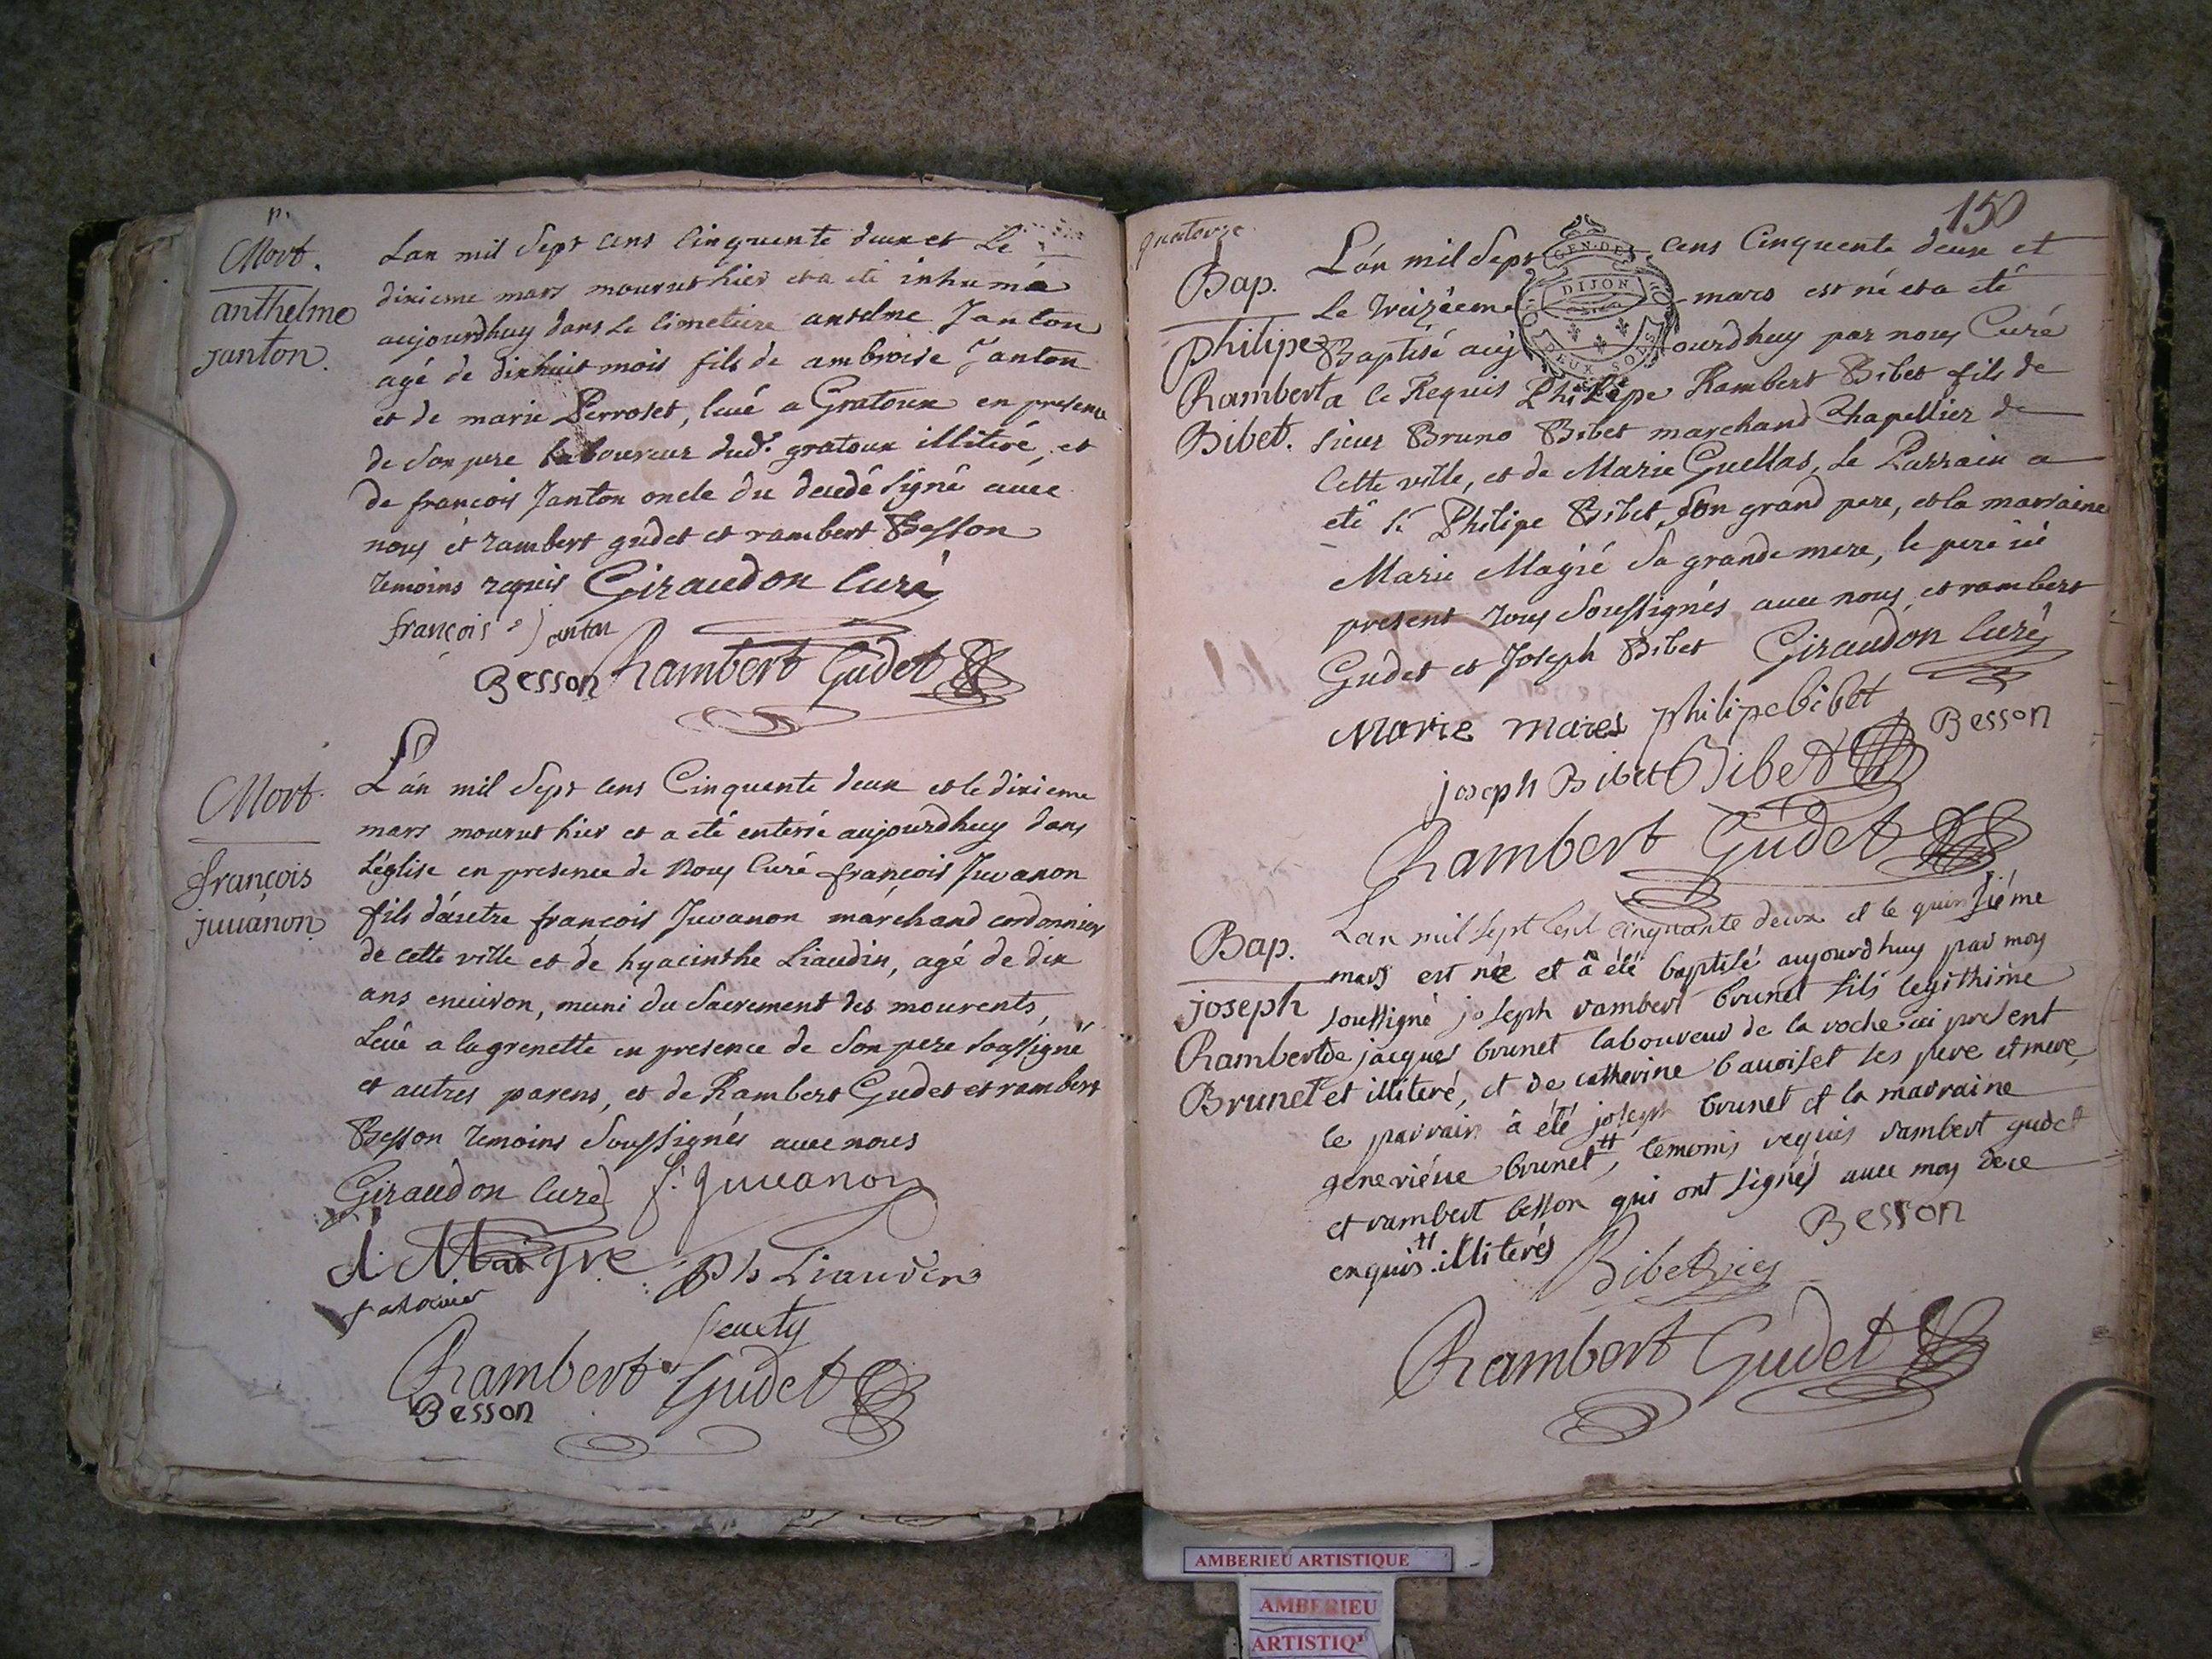 Mort.
anthelme
janton.
Lan mil Sept cens Cinquente deux et Le
dixieme mars mourut hier et a eté inhumé
aujourdhuy dans Le Cimetiere anselme Janton
agé de dixhuit mois fils de ambroise Janton
et de marie Perroset, levé a Gratoux en presence
de Son pere laboureur dud. gratoux illiteré, et
de françois Janton oncle du decedé Signé avec
nous et rambert gudet et rambert Besson
temoins requis Giraudon Curé
françois janton
Besson Rambert Gudet
Mort.
françois
juvanon
L'an mil Sept cens Cinquente deux et le dixieme
mars mourut hier et a eté enterré aujourdhuy dans
L'église en presence de Nous Curé françois Juvanon
fils d'autre françois Juvanon marchand cordonnier
de cette ville et de hyacinthe Liaudin, agé de dix
ans environ, muni du Sacrement des mourents,
Levé a la grenette en presence de Son pere Soussigné
et autres parens, et de Rambert Gudet et rambert
Besson temoins Soussignés avec nous
Giraudon Curé f. Juvanon
Liaudin
Rambert Gudet
Besson
150
quatorze
Bap.
Philipe
Rambert
Bibet.
GEN. DE
DIJON
DEUX SOLS
L'an mil Sept cens Cinquente deux et
Le treizieme mars est né et a eté
Baptisé aujourdhuy par nous Curé
a ce Requis Philipe Rambert Bibet fils de
Sieur Bruno Bibet marchand Chapellier de
Cette ville, et de Marie Guellas, Le Parrain a
eté Sr Philipe Bibet Son grand pere, et la marraine
Marie Magié Sa grande mere, le pere ici
present tous Soussignés avec nous, et rambert
Gudet et Joseph Bibet Giraudon Curé
Marie Mares philipe bibet Besson
joseph Bibet Bibet
Rambert Gudet
Bap.
joseph
Rambert
Brunet
Lan mil Sept Cent Cinquante deux et le quinsiéme
mars est née et â été baptisé aujourdhuy par moy
soussigné joseph rambert brunet fils legithime
de jacques brunet laboureur de la roche ici present
et illiteré, et de catherine bavoiset ses pere et mere,
le parrain â été joseph brunet et la marraine
geneviéve brunet, temoins requis rambert gudet
et rambert besson qui ont signés avec moy de ce
enquis. illiterés Besson
Rambert Gudet
AMBERIEU ARTISTIQUE
AMBERIEU
ARTISTIQ